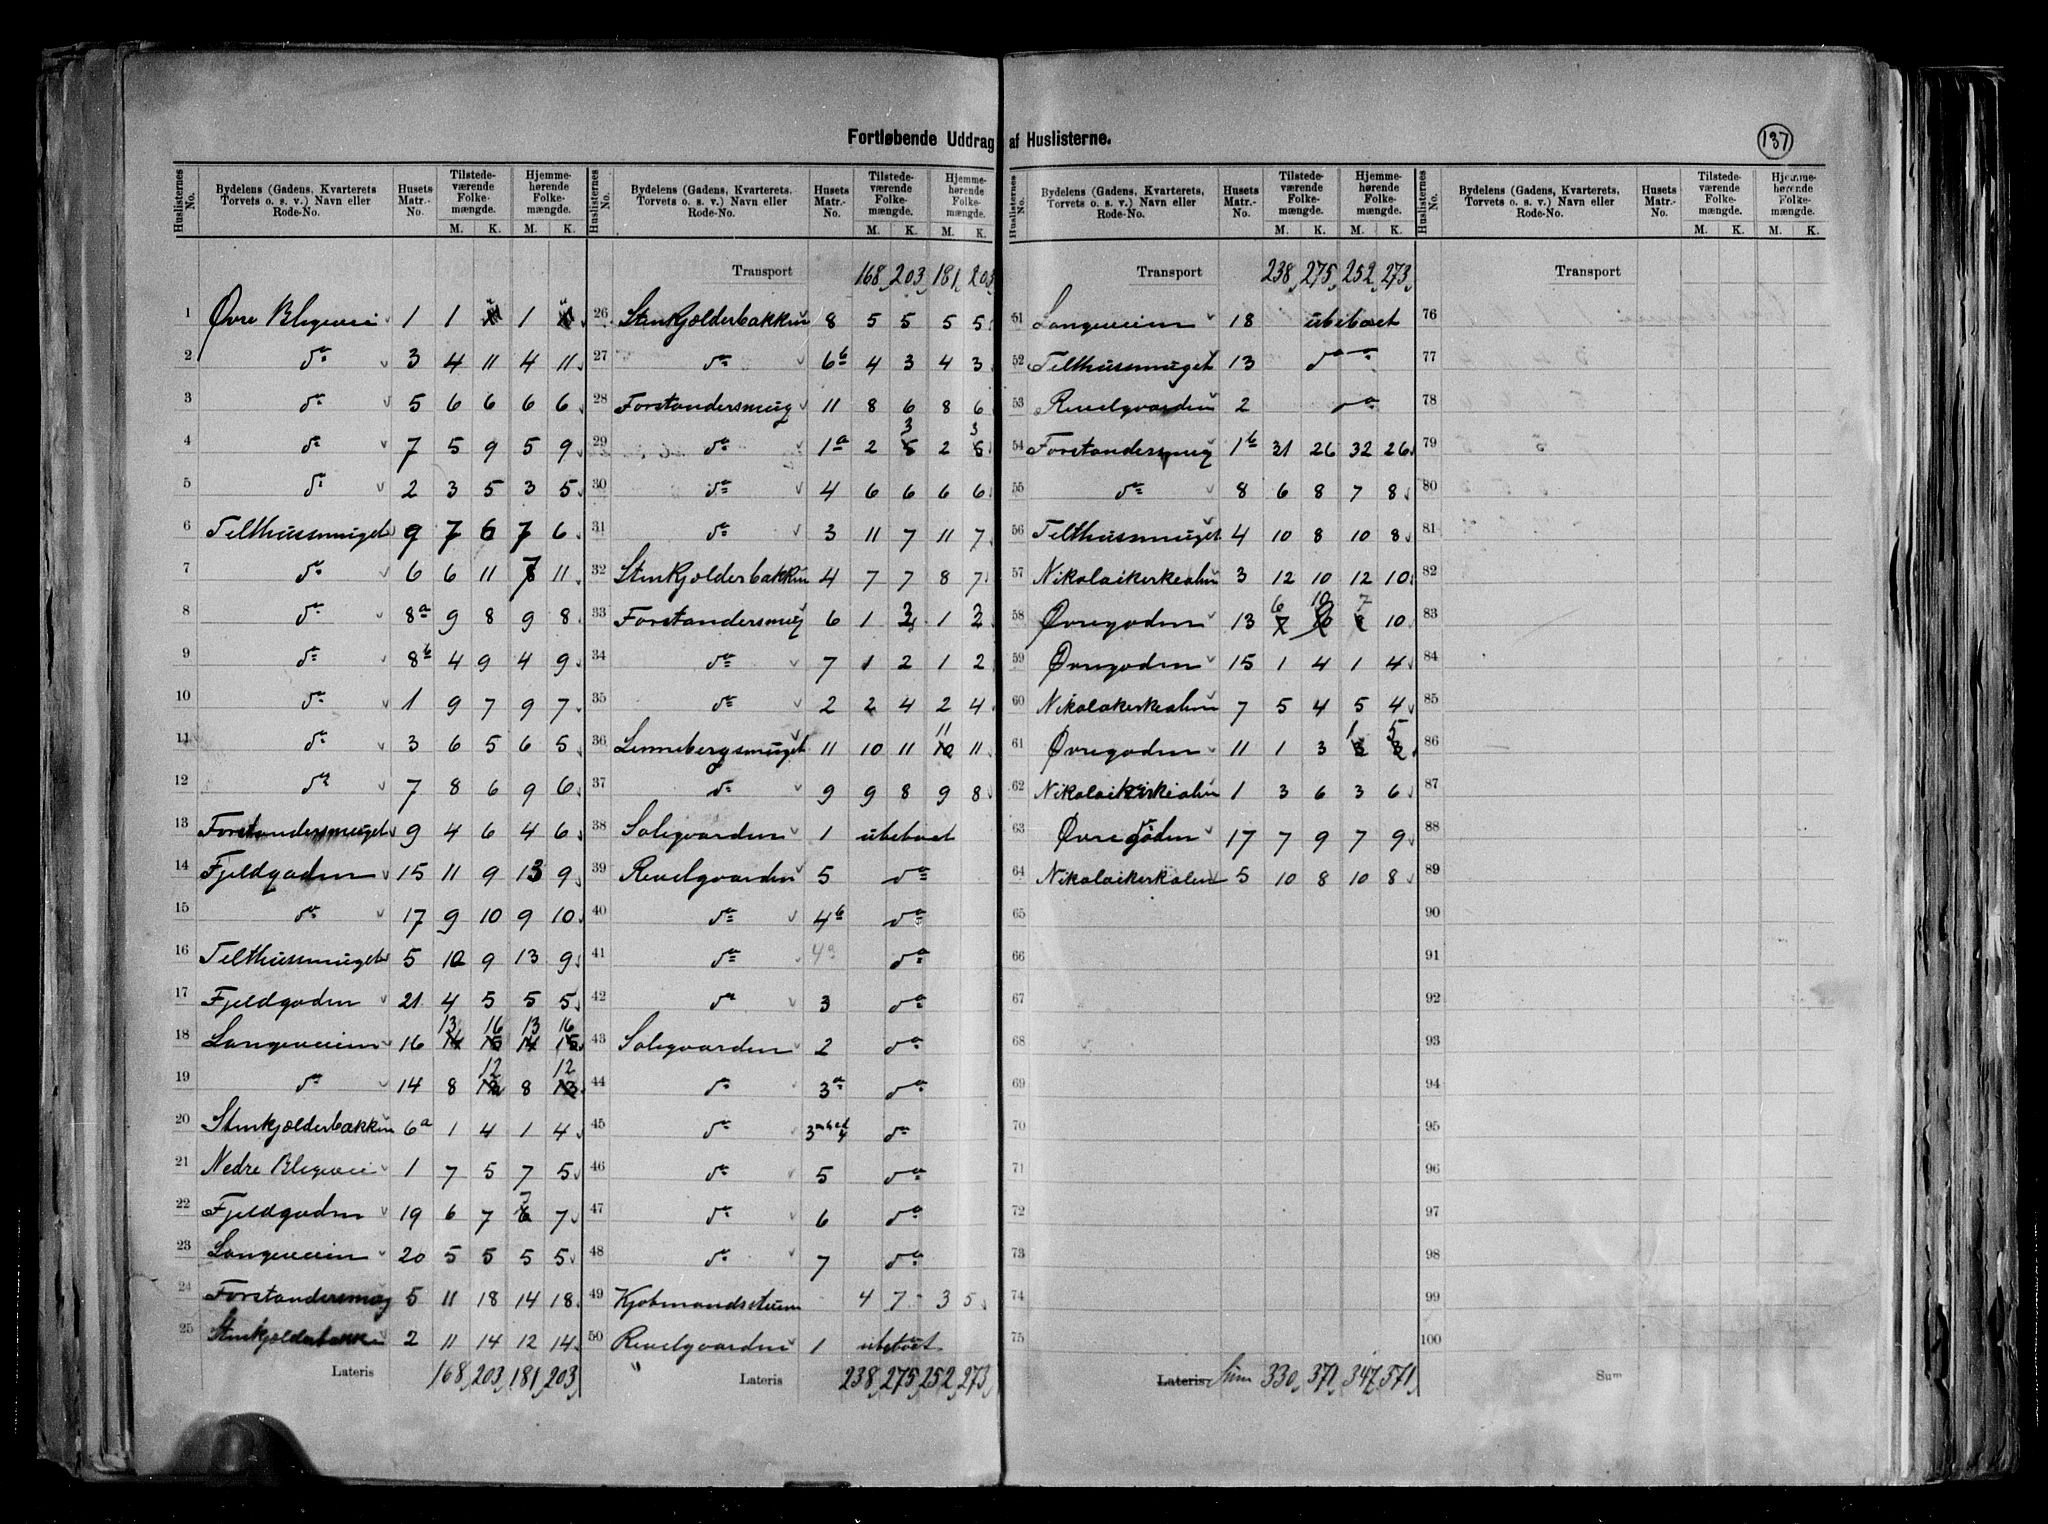 Fortløbende Uddrag af Huslisterne.
137
Huslisternes No. | Bydelens (Gadens, Kvarterets Torvets o. s. v.) Navn eller Rode-No. | Husets Matr.-No. | Tilstedeværende Folkemængde. M. K. | Hjemmehørende Folkemængde. M. K.
1 Øvre Blegevei 1 1 1
2 do 3 4 11 4 11
3 do 5 6 6 6 6
4 do 7 5 9 5 9
5 do 2 3 5 3 5
6 Telthussmuget 9 7 6 7 6
7 do 6 6 11 7 11
8 do 8a 9 8 9 8
9 do 8b 4 9 4 9
10 do 1 9 7 9 7
11 do 3 6 5 6 5
12 do 7 8 6 9 6
13 Forstandersmuget 9 4 6 4 6
14 Fjeldgaden 15 11 9 13 9
15 do 17 9 10 9 10
16 Telthussmuget 5 10 9 13 9
17 Fjeldgaden 21 4 5 5 5
18 Langeveien 16 13 16 13 16
19 do 14 8 12 8 12
20 Stenkjælderbakken 6a 1 4 1 4
21 Nedre Blegevei 1 7 5 7 5
22 Fjeldgaden 19 6 7 7 7
23 Langeveien 20 5 5 5 5
24 Forstandersmug 5 11 18 14 18
25 Stenkjælderbakke 2 11 14 12 14
Lateris 168 203 181 203
Huslisternes No. | Bydelens (Gadens, Kvarterets. Torvets o. s. v.) Navn eller Rode-No. | Husets Matr.-No. | Tilstedeværende Folkemængde. M. K. | Hjemmehørende Folkemængde. M. K.
Transport 168 203 181 203
26 Stenkjælderbakken 8 5 5 5 5
27 do 6b 4 3 4 3
28 Forstandersmug 11 8 6 8 6
29 do 1a 2 3 2 3
30 do 4 6 6 6 6
31 do 3 11 7 11 7
32 Stenkjælderbakken 4 7 7 8 7
33 Forstandersmug 6 1 3 1 3
34 do 7 1 2 1 2
35 do 2 2 4 2 4
36 Lennebergsmuget 11 10 11 11 11
37 do 9 9 8 9 8
38 Solegaarden 1 ubeboet
39 Revelgaarden 5 do
40 do 4b do
41 do 4a do
42 do 3 do
43 Solegaarden 2 do
44 do 3a do
45 do do
46 do 5 do
47 do 6 do
48 do 7 do
49 Kjøbmandsstuen 4 7 3 5
50 Revelgaarden 1 ubeboet
Lateris 238 275 252 273
Huslisternes No. | Bydelens (Gadens, Kvarterets, Torvets o. s. v.) Navn eller Rode-No. | Husets Matr.-No. | Tilstedeværende Folkemængde. M. K. | Hjemmehørende Folkemængde. M. K.
Transport 238 275 252 273
51 Langeveien 18 ubeboet
52 Telthussmuget 13 do
53 Revelgaarden 2 do
54 Forstandersmug 1b 31 26 32 26
55 do 8 6 8 7 8
56 Telthussmuget 4 10 8 10 8
57 Nikolaikirkealm 3 12 10 12 10
58 Øvregaden 13 6 10 7 10
59 Øvregaden 15 1 4 1 4
60 Nikolakirkealm 7 5 4 5 4
61 Øvregaden 11 1 3 1 5
62 Nikolaikirkealm 1 3 6 3 6
63 Øvregaden 17 7 9 7 9
64 Nikolaikirkealm 5 10 8 10 8
65
66
67
68
69
70
71
72
73
74
75
Lateris Sum 330 371 347 371
Huslisternes No. | Bydelens (Gadens, Kvarterets, Torvets o. s. v.) Navn eller Rode-No. | Husets Matr.-No. | Tilstedeværende Folkemængde. M. K. | Hjemmehørende Folkemængde. M. K.
Transport
76
77
78
79
80
81
82
83
84
85
86
87
88
89
90
91
92
93
94
95
96
97
98
99
100
Sum